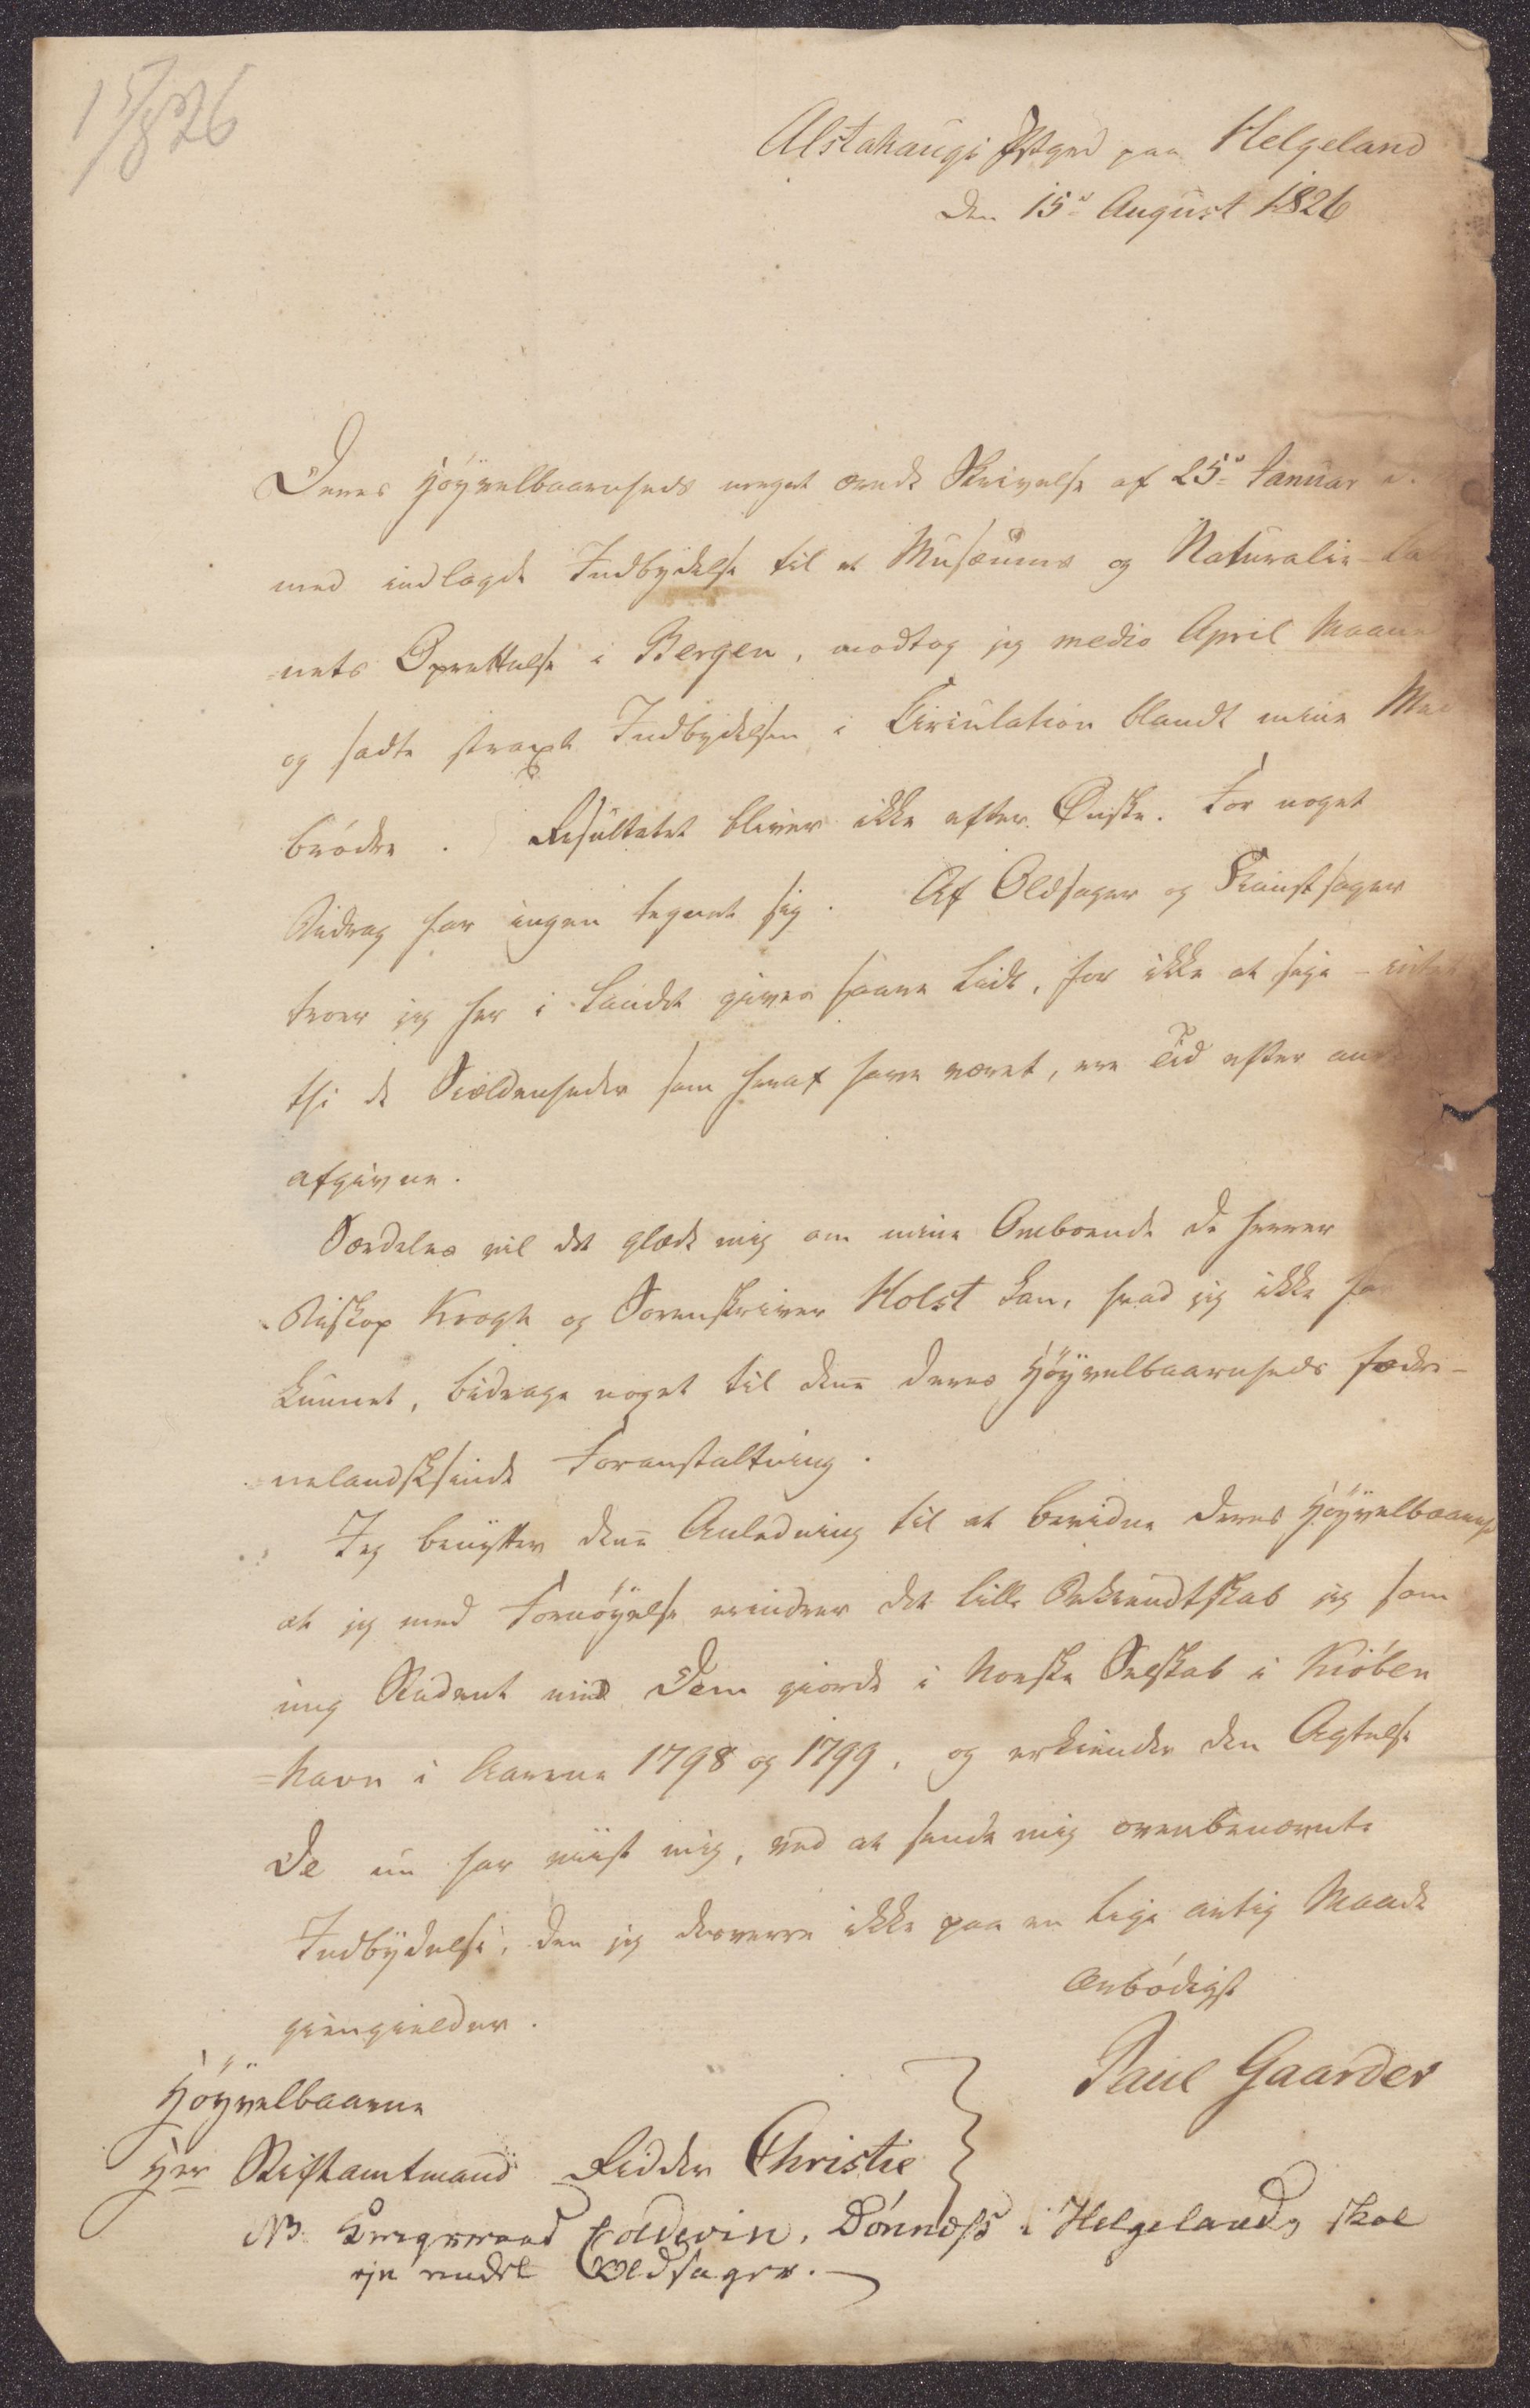 15/8 26
Alstahaugs Prstgrd paa Helgeland
den 15de August 1826
Deres Høyvelbaarenheds meget ærede Skrivelse af 25de Januar d.
med indlagde Indbydelse til et Musæums og Naturalie-Cabi
nets Oprettelse i Bergen, modtog jeg medio April Maaned
og sadte straxt Indbydelsen i Circulation blandt mine Med
brödre. Resultatet bliver ikke efter Ønske. For noget
Bidrag har ingen tegnet sig. Af Oldsager og Kunstsager
troer jeg her i Landet gives saare lidt, for ikke at sige - intet
thi de Sieldenheder som heraf have været, ere Tid efter anden
afgivne.
Særdeles vil det glæde mig om mine Omboende de Herrer
Biskop Krogh og Sorenskriver Holst kan, hvad jeg ikke har
kunnet, bidrage noget til denne Deres Høyvelbaarenheds fædre-
nelandsksindede Foranstaltning.
Jeg benytter denne Anledning til at bevidne Deres Høyvelbaarenhed
at jeg med Fornöyelse erindrer det lille Bekiendtskab jeg som
ung Student med Dem giorde i Norske Selskab i Kiöben
=havn i Aarene 1798 og 1799, og erkiender den Agtelse
De nu har viist mig, ved at sende mig ovenbenævnte
Indbydelse, den jeg desværre ikke paa en lige artig Maade
giengielder.
Ærbödigst
Paul Gaarder
Høyvelbaarne
Herr Stiftamtmand Ridder Christie
NB. Coldevin, Dönnæss i Helgeland, skal
eje endel Oldsager.